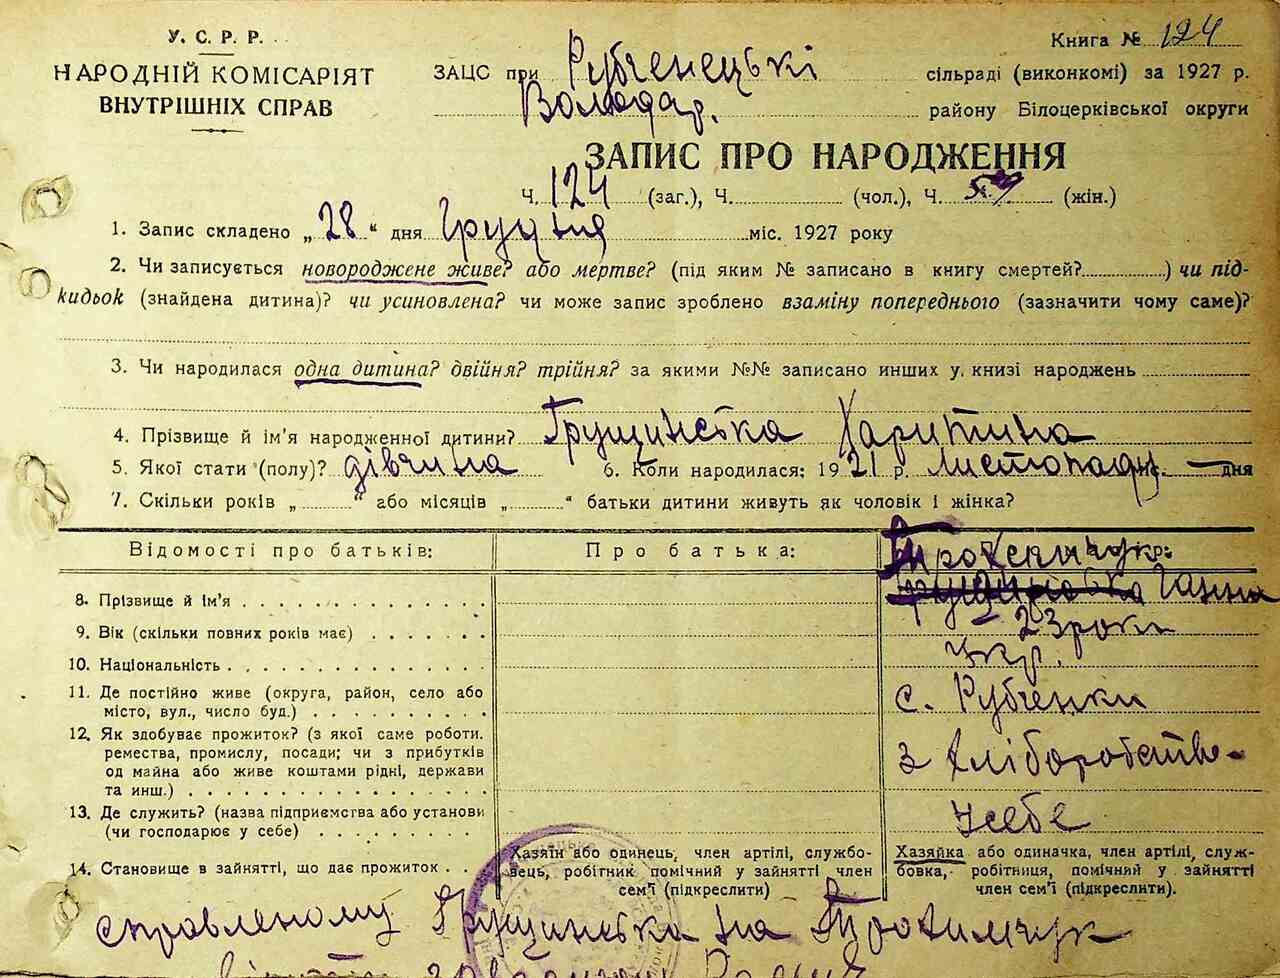 У. С. Р. Р.
НАРОДНІЙ КОМІСАРІЯТ
ВНУТРІШНІХ СПРАВ
Книга № 124
ЗАЦС при Рубченецькі сільраді (виконкомі) за 1927 р.
Володар. району Білоцерківської округи
ЗАПИС ПРО НАРОДЖЕННЯ
Ч. 124 (заг.), Ч. (чол.), Ч. (жін.)
1. Запис складено „28“ дня Грудня міс. 1927 року
2. Чи записується новороджене живе? або мертве? (під яким № записано в книгу смертей?) чи під-
кидьок (знайдена дитина)? чи усиновлена? чи може запис зроблено взаміну попереднього (зазначити чому саме)?
3. Чи народилася одна дитина? двійня? трійня? за якими №№ записано инших у книзі народжень
4. Прізвище й ім'я народженної дитини? Грущинська Харитина
5. Якої стати (полу)? дівчина 6. Коли народилася: 1921 р. листопаду — дня
7. Скільки років „ “ або місяців „ “ батьки дитини живуть як чоловік і жінка?
Відомості про батьків: Про батька:
8. Прізвище й ім'я Грущинська Ганна
9. Вік (скільки повних років має) 23 роки
10. Національність Укр.
11. Де постійно живе (округа, район, село або
місто, вул., число буд.) с. Рубченки
12. Як здобуває прожиток? (з якої саме роботи.
ремества, промислу, посади; чи з прибутків
од майна або живе коштами рідні, держави
та инш.) з хліборобство-
13. Де служить? (назва підприємства або установи
(чи господарює у себе) у себе
14. Становище в зайнятті, що дає прожиток
Хазяїн або одинець, член артілі, службо-
вець, робітник помічний у зайнятті член
сем'ї (підкреслити)
Хазяйка або одиначка, член артілі, служ-
бовка, робітниця, помічний у зайнятті
член сем'ї (підкреслити).
справленому Грущинська на Трохимчук